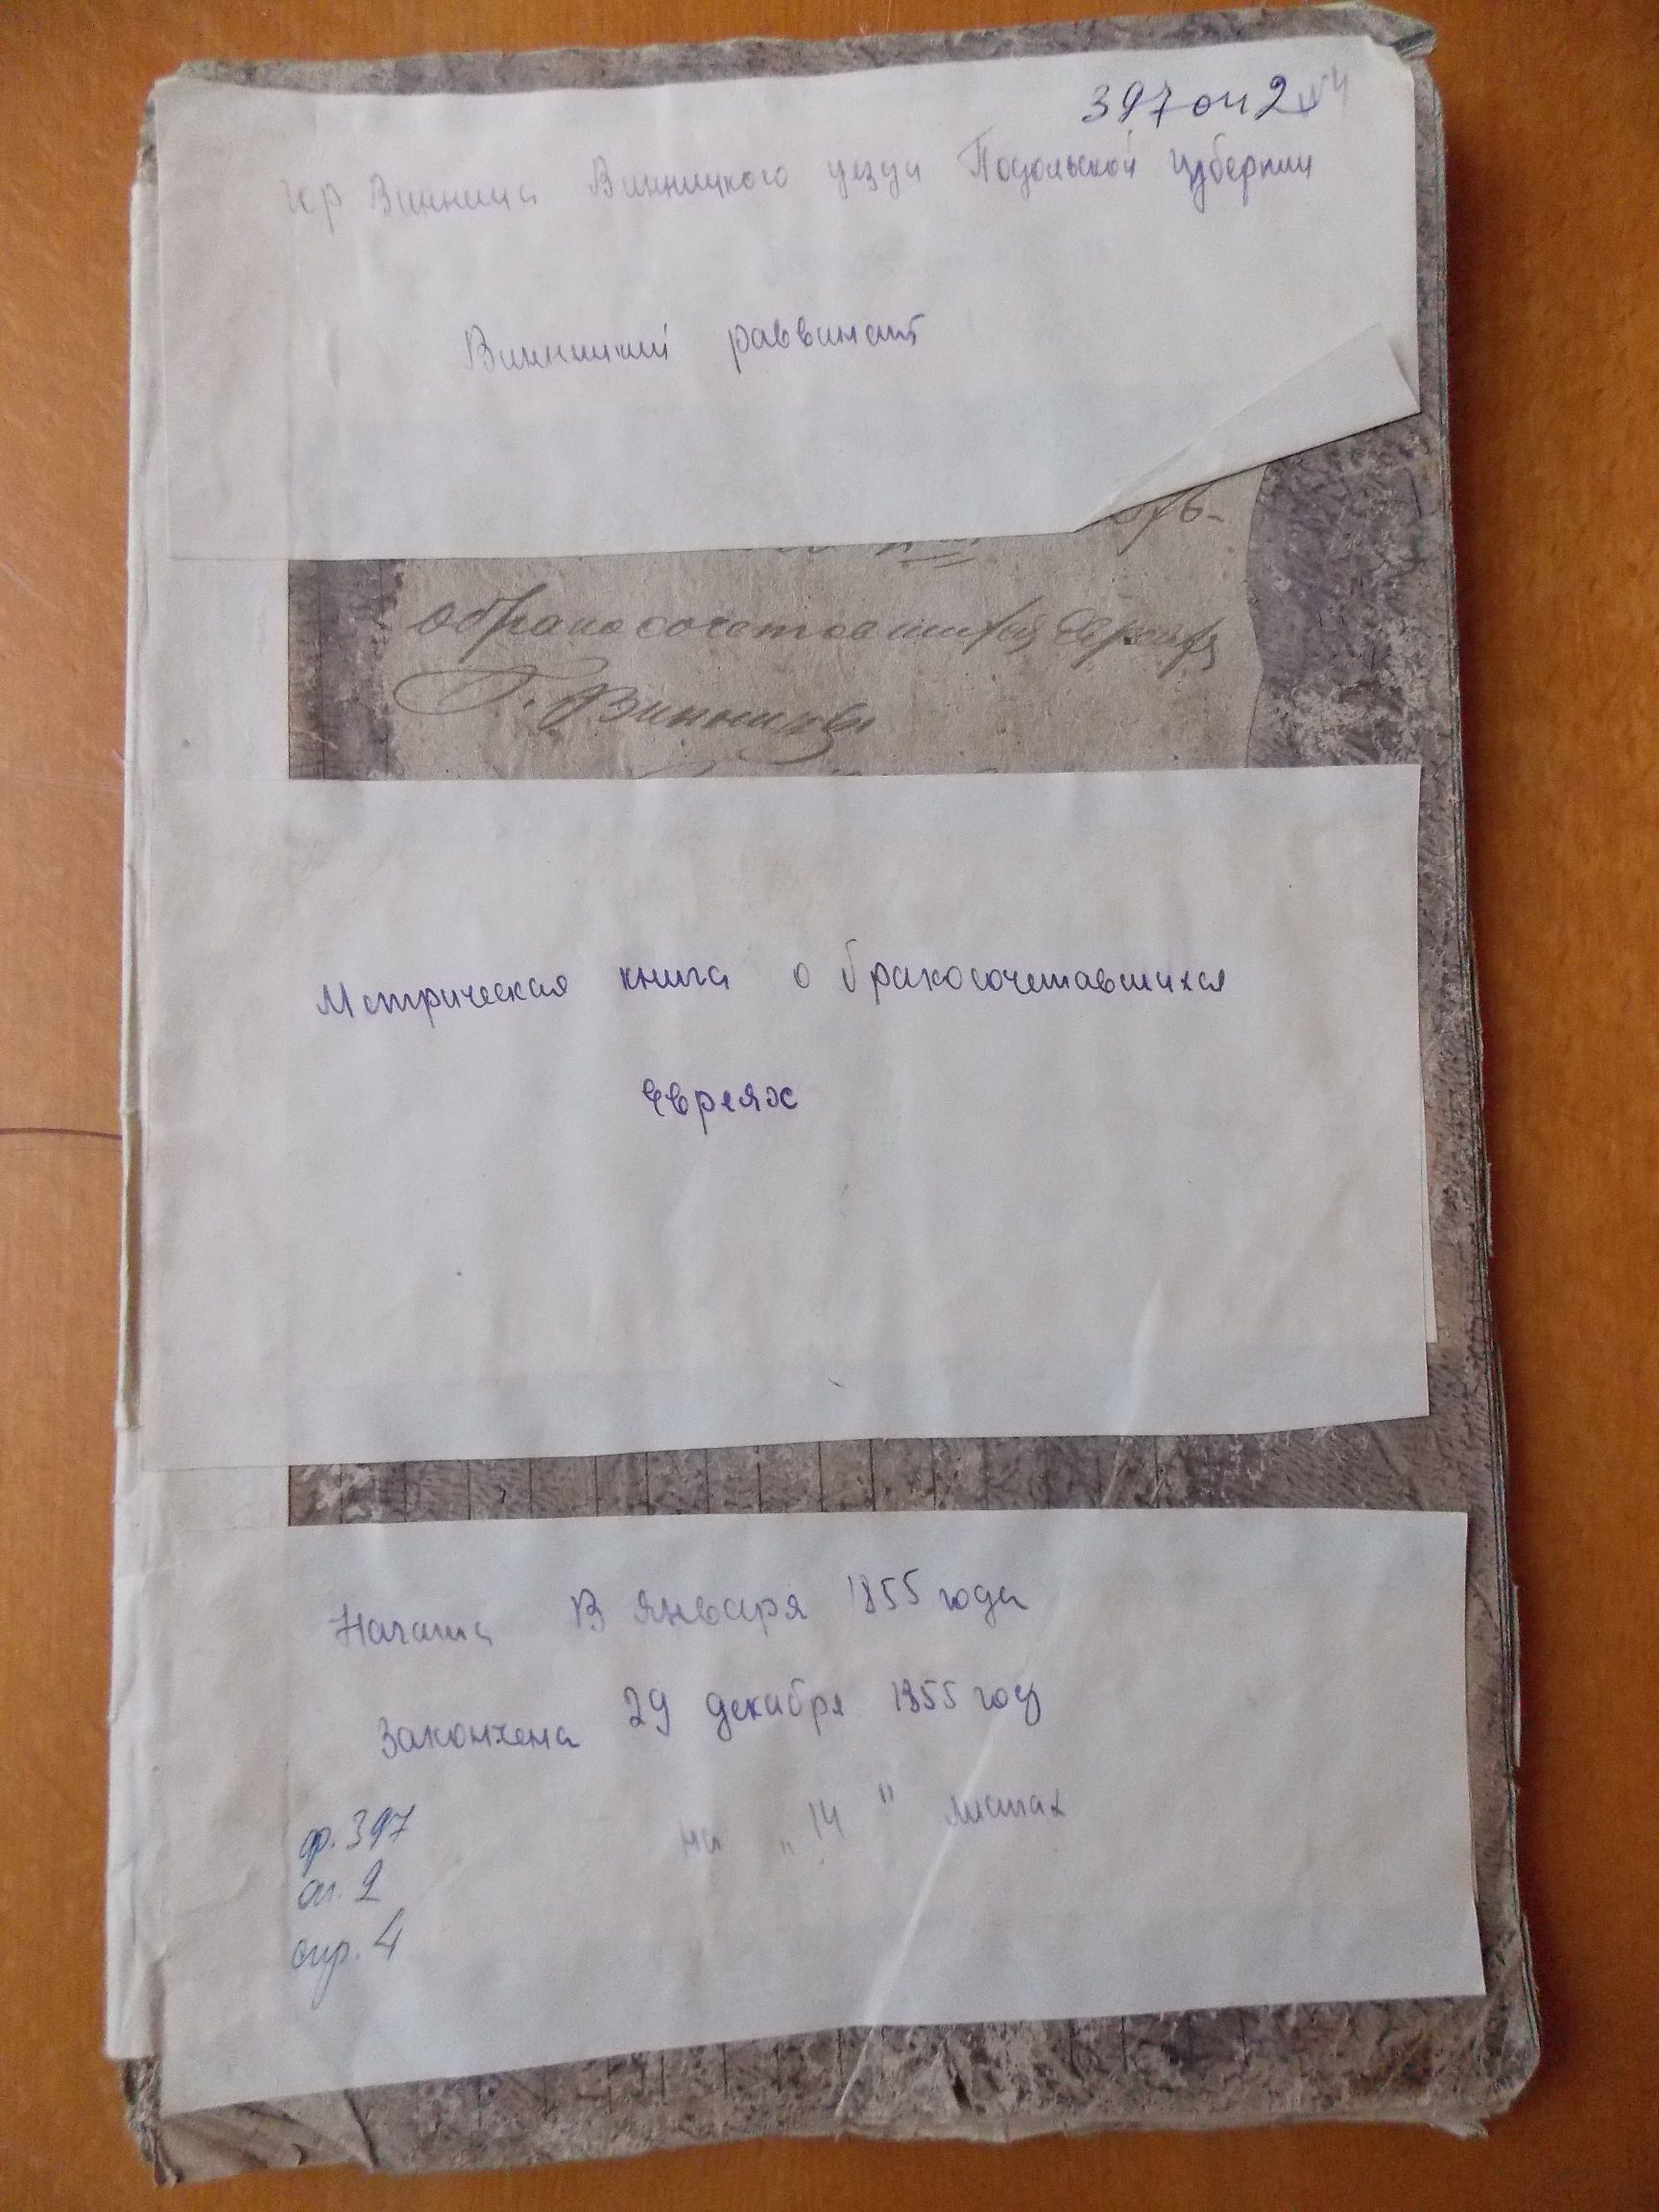 397 оп 2 №4
гор Винница Винницкого уезда Подольской губернии
Винницкий раввинат
о бракосочетавшихся Евреях
Г. Винницы
Метрическая книга о бракосочетавшихся
евреях
Начата В января 1855 года
Закончена 29 декабря 1855 году
на „14" листах
ф. 397
оп. 2
спр. 4